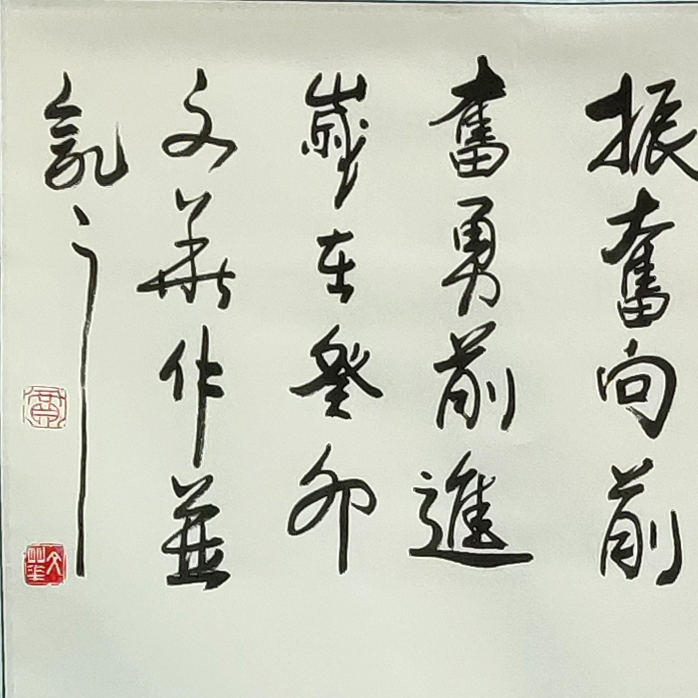 振奮向前
奮勇前進
歲在癸卯
文華作並
記之
文華